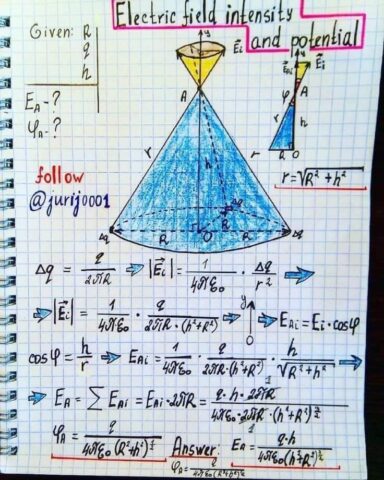 Electric field intensity
and potential
Given: R
q
h
E_A - ?
φ_A - ?
follow
@jurij0001
y
E⃗i
A
r
h
R
R
O
R
Δq
Δq
y
E⃗_Ai
E⃗i
A
φ
r
h
R
O
r = √(R² + h²)
Δq = q/(2πR) ⇒ |E⃗i| = 1/(4πε₀) · Δq/r² ⇒
→ |E⃗i| = 1/(4πε₀) · q/(2πR·(h²+R²)) → y O → E_Ai = Ei · cosφ
cosφ = h/r → E_Ai = 1/(4πε₀) · q/(2πR·(h²+R²)) · h/√(R²+h²) →
⇒ E_A = ∑ E_Ai = E_Ai · 2πR = (q·h·2πR)/(4πε₀·2πR·(h²+R²)^(3/2))
φ_A = q/(4πε₀(R²+h²)^(1/2)) Answer: E_A = (q·h)/(4πε₀(h²+R²)^(3/2))
φ_A = q/(4πε₀(R²+h²)^(1/2))